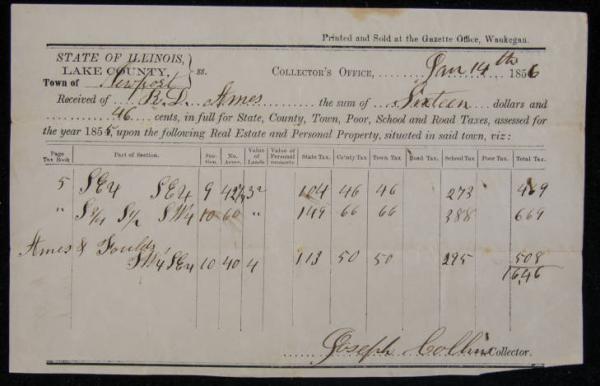 Printed and Sold at the Gazette Office, Waukegan.
STATE OF ILLINOIS,
LAKE COUNTY, ss. COLLECTOR'S OFFICE, Jan 14th 1856
Town of Newport
Received of R. D. Ames the sum of Sixteen dollars and
46 cents, in full for State, County, Town, Poor, School and Road Taxes, assessed for
the year 1855, upon the following Real Estate and Personal Property, situated in said town, viz:
Page Tax Book Part of Section. Section. No. Acres. Value of Lands Value of Personal State Tax. County Tax Town Tax Road Tax. School Tax Poor Tax. Total Tax.
5 SE4 SE4 9 104 46 46 273 469
" S 1/2 SW4 10 60 " 149 66 66 388 669
Ames &
SW4 SE4 10 40 4 113 50 50 295 508
1646
Joseph Collins Collector.